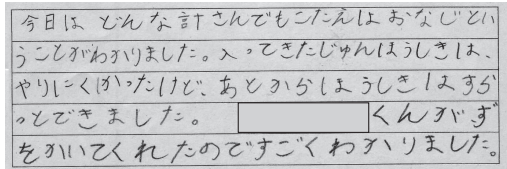 今日は どんな計さんでもこたえはおなじとい
うことがわかりました。入ってきたじゅんほうしきは、
やりにくかったけど、あとからほうしきはすら
っとできました。 くんがず
をかいてくれたのですごくわかりました。